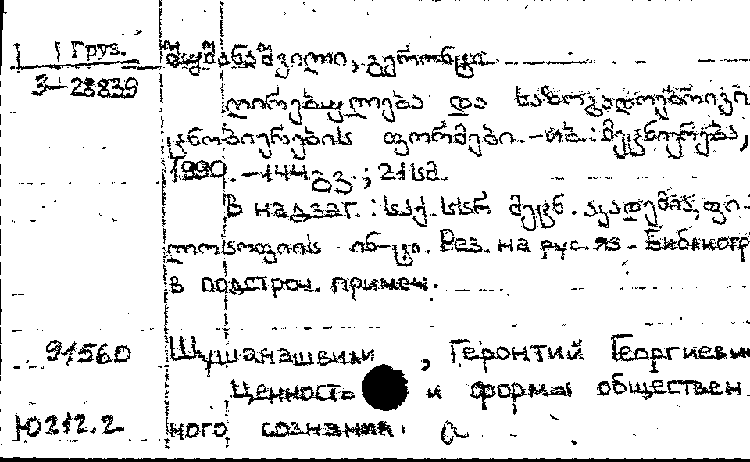 Груз. შუშანაშვილი, გერონტი
3-28839
ღირებულება და საზოგადოებრივი
ცნობიერების ფორმები. -თბ.: მეცნიერება,
1990. -144გვ.; 21სმ.
В надзаг.: საქ. სსრ მეცნ. აკადემია, ფი-
ლოსოფიის ინ-ტი. Рез. на рус. яз. - Библиогр
в подстроч. примеч.
91560 Шушанашвили, Геронтий Георгиевич
Ценность и формы обществен
Ю212.2 ного сознания. а